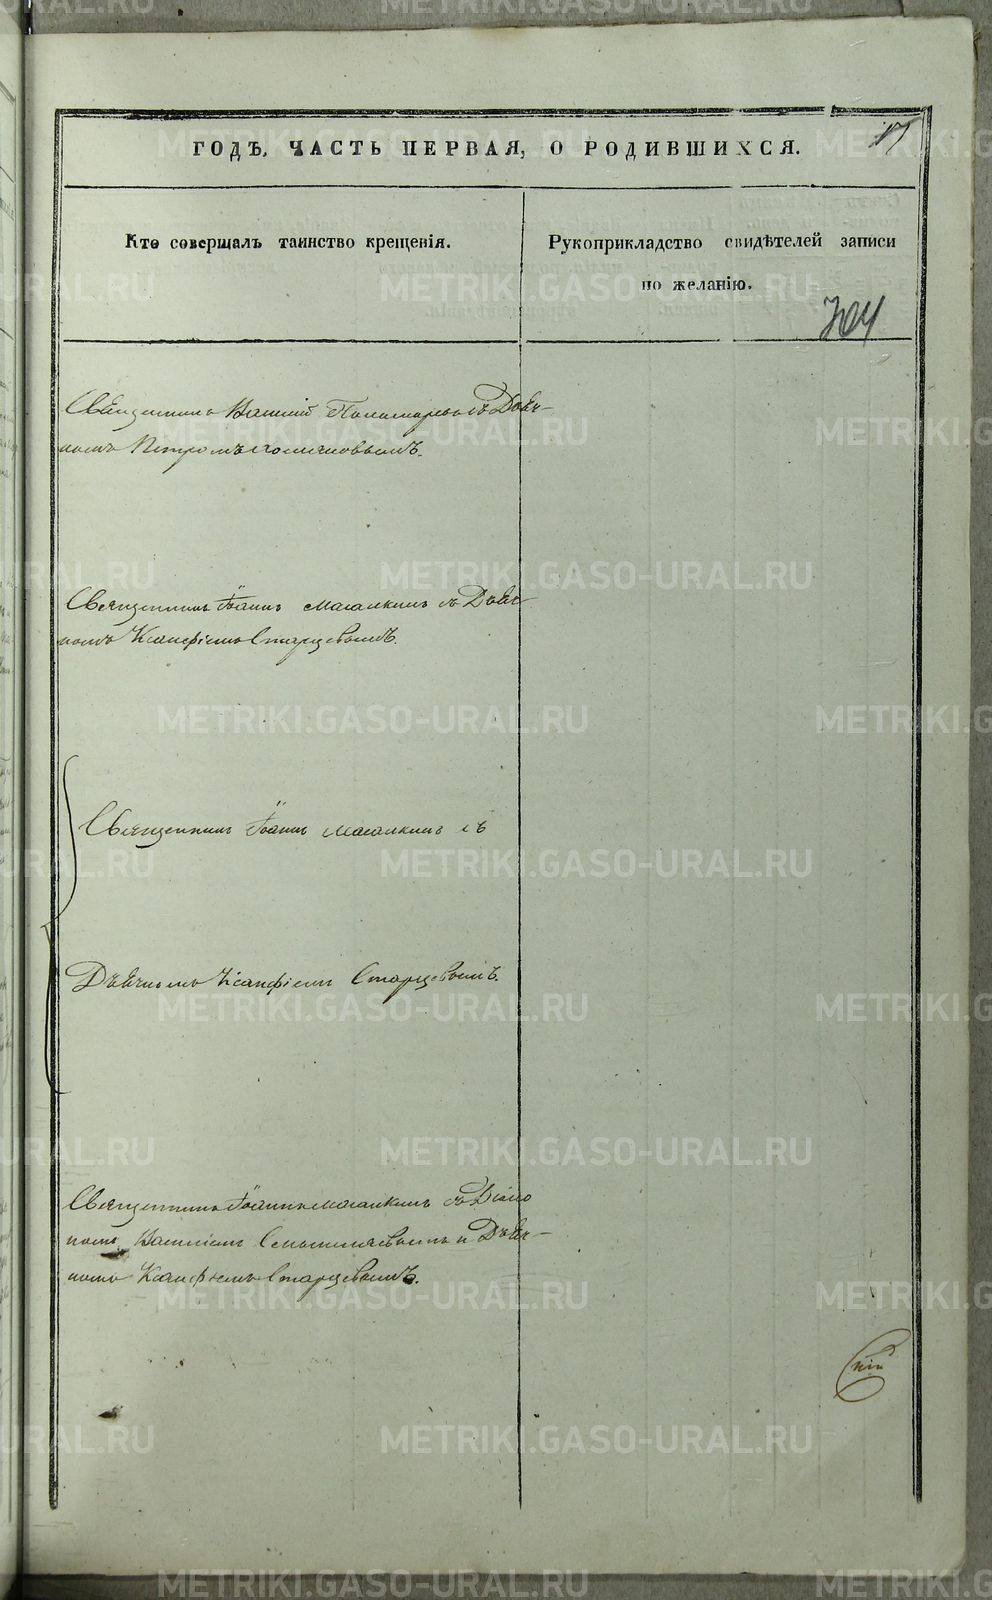 ГОДЪ, ЧАСТЬ ПЕРВАЯ, О РОДИВШИХСЯ.
17
Кто совершалъ таинство крещенія.
Рукоприкладство свидѣтелей записи
по желанію.
704
Священникъ Василій Пономаревъ съ Дьяч-
комъ Петромъ
Священникъ Іоаннъ Масалкинъ съ Дьяч-
комъ Ксанфіемъ Старцевымъ.
Священникъ Іоаннъ Масалкинъ съ
Дьячкомъ Ксанфіемъ Старцевымъ.
Священникъ Іоаннъ Масалкинъ съ Діако-
номъ Василіемъ и Дьяч-
комъ Ксанфіемъ Старцевымъ.
METRIKI.GASO-URAL.RU